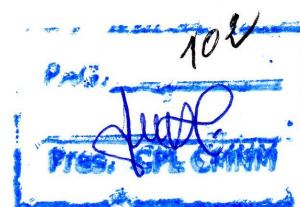 102
PAG.
Pres. CPL CMNM